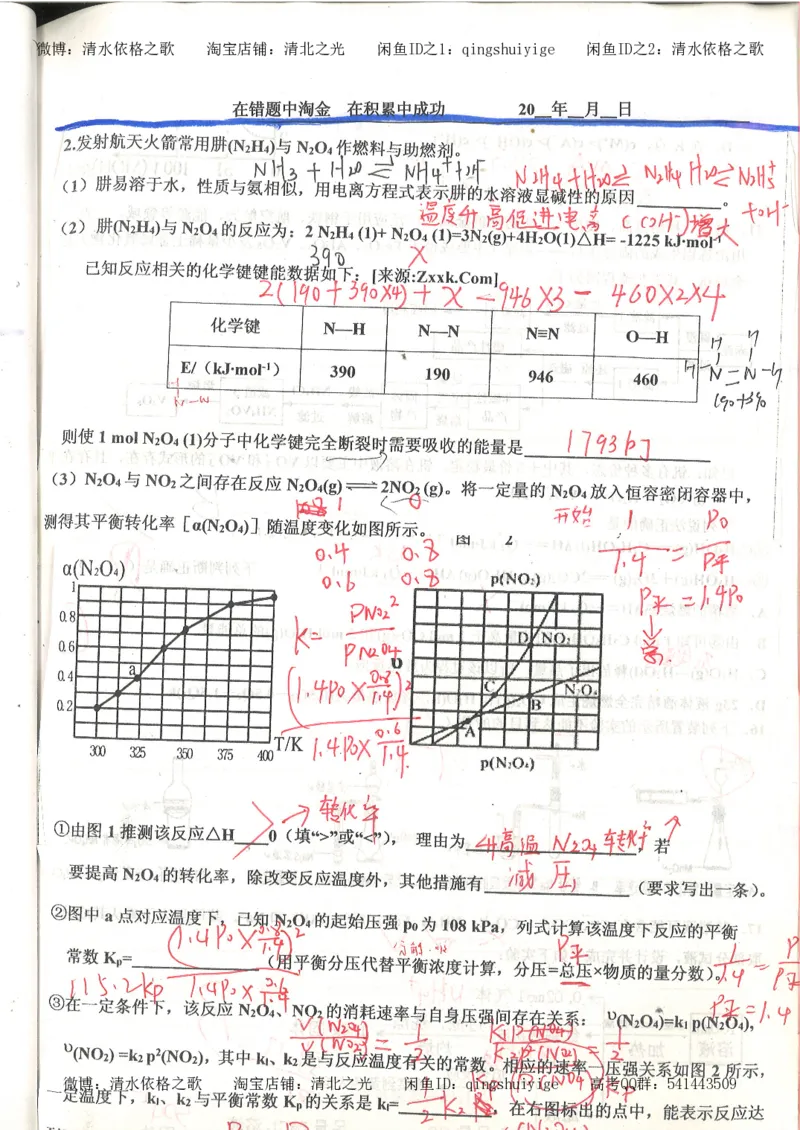 微博：清水依格之歌 淘宝店铺：清北之光 闲鱼ID之1：qingshuiyige 闲鱼ID之2：清水依格之歌
在错题中淘金 在积累中成功 20__年__月__日
2.发射航天火箭常用肼(N₂H₄)与 N₂O₄ 作燃料与助燃剂。
NH₃ + H₂O ⇌ NH₄⁺ + OH⁻
N₂H₄ + H₂O ⇌ N₂H₄·H₂O ⇌ N₂H₅⁺
+ OH⁻
（1）肼易溶于水，性质与氨相似，用电离方程式表示肼的水溶液显碱性的原因__________。
温度升高促进电离 C(OH⁻)增大
（2）肼(N₂H₄)与 N₂O₄ 的反应为：2 N₂H₄ (1)+ N₂O₄ (1)=3N₂(g)+4H₂O(1)△H= -1225 kJ·mol⁻¹
390 x
已知反应相关的化学键键能数据如下：[来源:Zxxk.Com]
2(190+390×4)+x-946×3-460×2×4
化学键 N—H N—N N≡N O—H
E/（kJ·mol⁻¹） 390 190 946 460
190+390
则使 1 mol N₂O₄ (1)分子中化学键完全断裂时需要吸收的能量是__________
1793 kJ
（3）N₂O₄ 与 NO₂ 之间存在反应 N₂O₄(g) ⇌ 2NO₂ (g)。将一定量的 N₂O₄ 放入恒容密闭容器中，
1 0
测得其平衡转化率［α(N₂O₄)］随温度变化如图所示。
图 2
开始 1 P₀
1.4 = P平
0.4 0.8
0.6 0.8
P平=1.4P₀
α(N₂O₄)
1
0.8
0.6
0.4
0.2
a
300 325 350 375 400 T/K
K= PNO₂² / PN₂O₄
(1.4P₀×0.8/1.4)²
1.4P₀×0.6/1.4
p(NO₂)
D NO₂
C
N₂O₄
B
A
p(N₂O₄)
转化率
①由图 1 推测该反应△H____0（填“>”或“<”）， 理由为__________，若
> 升高温 N₂O₄转化率↑
要提高 N₂O₄ 的转化率，除改变反应温度外，其他措施有__________（要求写出一条）。
减压
②图中 a 点对应温度下，已知 N₂O₄ 的起始压强 p₀ 为 108 kPa，列式计算该温度下反应的平衡
(1.4P₀×0.8/1.4)²
P平
常数 Kₚ=__________（用平衡分压代替平衡浓度计算，分压=总压×物质的量分数）。
115.2kp 1.4P₀×0.6/1.4
1/1.4 = P
P平=1.4
③在一定条件下，该反应 N₂O₄、NO₂ 的消耗速率与自身压强间存在关系： υ(N₂O₄)=k₁ p(N₂O₄),
V(N₂O₄)/V(NO₂) = 1/2
K₁P(N₂O₄)/K₂P²(NO₂) = 1/2
υ(NO₂) =k₂ p²(NO₂)，其中 k₁、k₂ 是与反应温度有关的常数。相应的速率—压强关系如图 2 所示，
微博：清水依格之歌 淘宝店铺：清北之光 闲鱼ID：qingshuiyige 高考QQ群：541443509
一定温度下，k₁、k₂ 与平衡常数 Kₚ 的关系是 k₁=__________，在右图标出的点中，能表示反应达